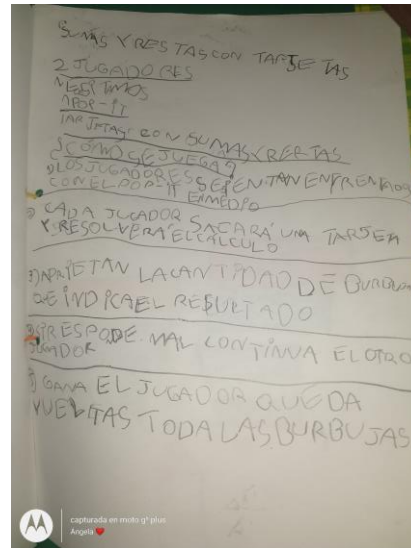 SUMAS Y RESTAS CON TARJETAS
2 JUGADORES
NESITMOS
1 POP-IT
TARJETAS CON SUMAS Y RERTAS
¿CÓMO SE JUEGA?
LOS JUGADORES SE PENTAN ENFRENTADOS
CON EL POP-IT EN MEDIO
CADA JUGADOR SACARÁ UNA TARJETA
Y RESOLVERÁ EL CÁLCULO
APRIETAN LA CANTIDAD DE BURBUJAS
QE INDICA EL RESULTADO
SI RESPODE MAL CONTINUA EL OTRO
JUGADOR
GANA EL JUGADOR QUE DA
VUELTAS TODA LAS BURBUJAS
capturada en moto g⁸ plus
Angela ❤